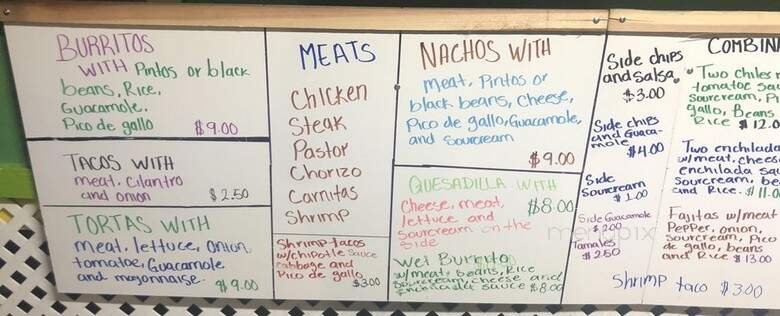 BURRITOS
WITH Pintos or black
beans, Rice,
Guacamole.
Pico de gallo $9.00
TACOS WITH
meat, Cilantro
and onion $2.50
TORTAS WITH
meat, lettuce, onion
tomatoe, Guacamole
and mayonnaise. $9.00
MEATS
Chicken
Steak
Pastor
Chorizo
Carnitas
Shrimp
Shrimp tacos
w/chipotle sauce
cabbage and
Pico de gallo $3.00
NACHOS WITH
meat, Pintos or
black beans, Cheese,
Pico de gallo, Guacamole,
and sourcream
$9.00
QUESADILLA WITH
Cheese, meat, $8.00
lettuce and
sourcream on the
side
Wet Burrito
w/meat, beans, Rice
sourcream, cheese and
enchilada sauce $8.00
Side chips
and salsa
$3.00
Side chips
and Guaca-
mole $4.00
Side
Sourcream
$1.00
Side Guacamole
$2.00
Tamales
$2.50
COMBIN
Two chiles r
tomatoe sau
sourcream, Pi
gallo, Beans
Rice $12.0
Two enchilada
w/meat, cheese
enchilada sau
sourcream, be
and Rice. $11.0
Fajitas w/meat
Pepper, onion,
sourcream, Pico
de gallo, beans
and Rice $13.00
Shrimp taco $3.00
menupix